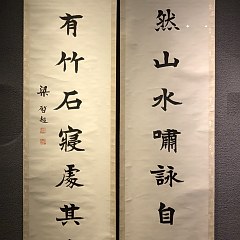 然山水嘯詠自
有竹石寢處其
梁啓超